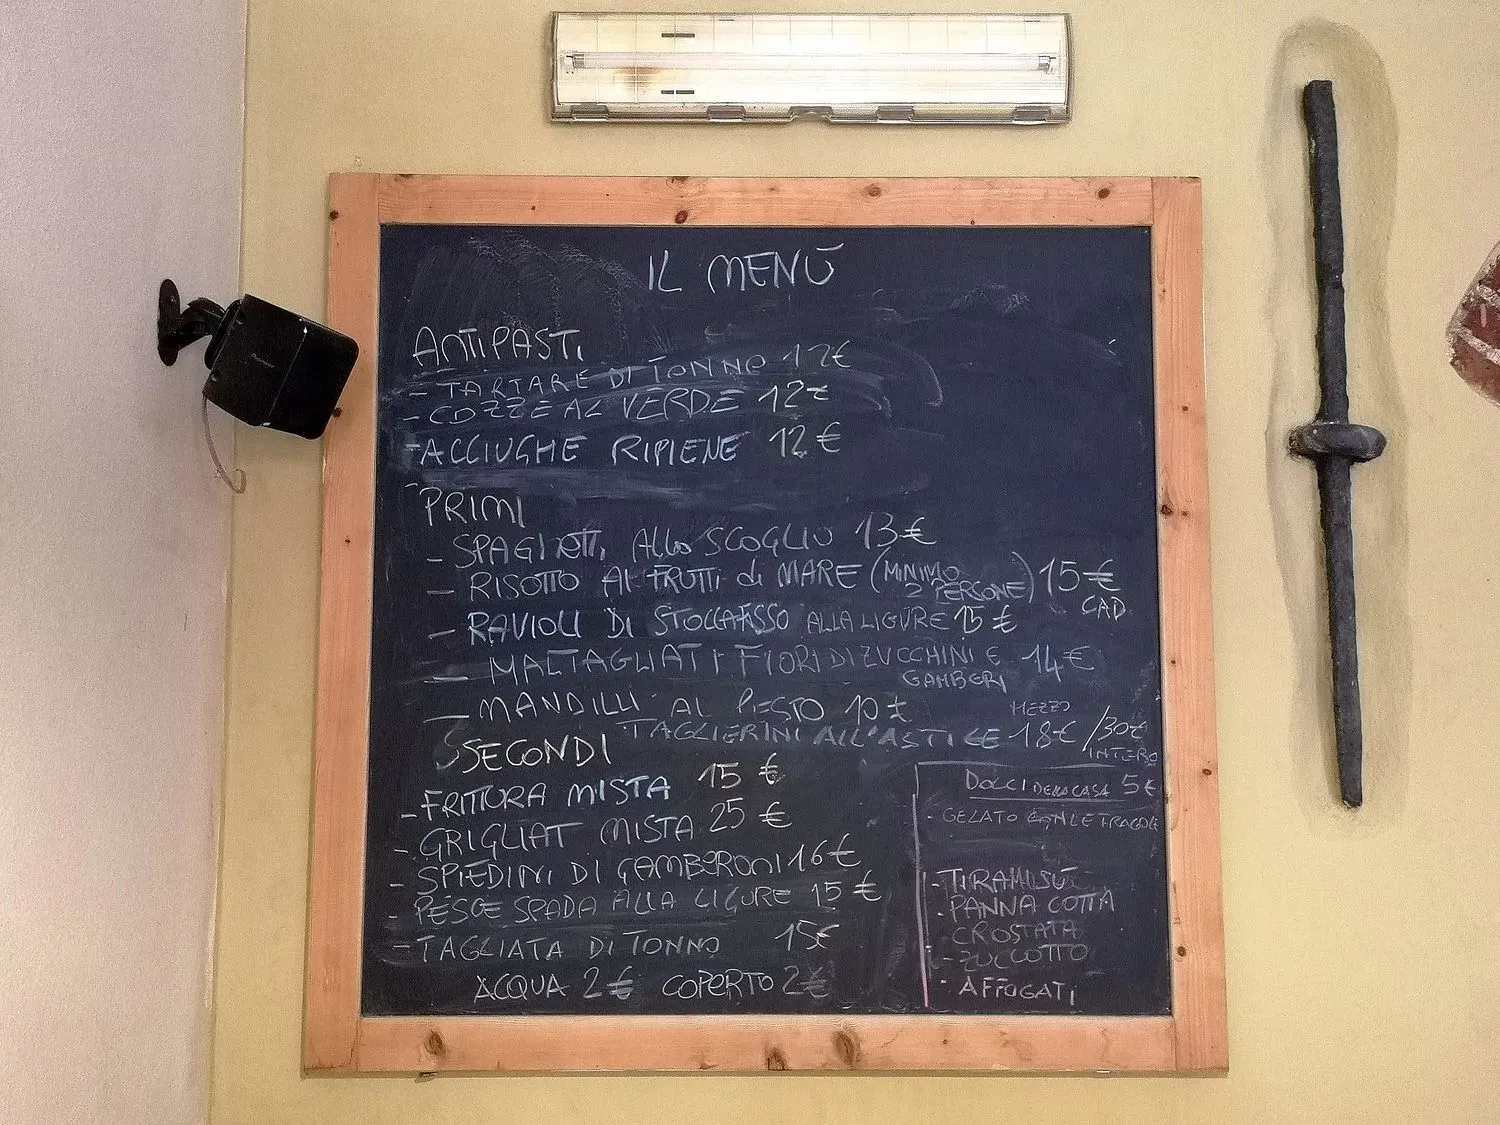 IL MENÚ
ANTIPASTI
- TARTARE DI TONNO 12€
- COZZE AL VERDE 12€
- ACCIUGHE RIPIENE 12€
PRIMI
- SPAGHETTI ALLO SCOGLIO 13€
- RISOTTO AI FRUTTI di MARE (MINIMO 2 PERSONE) 15€ CAD.
- RAVIOLI DI STOCCAFISSO ALLA LIGURE 15€
- MALTAGLIATI FIORI DI ZUCCHINI E GAMBERI 14€
- MANDILLI AL PESTO 10€
TAGLIERINI ALL'ASTICE MEZZO 18€/30€ INTERO
SECONDI
- FRITTURA MISTA 15€
- GRIGLIAT MISTA 25€
- SPIEDINI DI GAMBERONI 16€
- PESCE SPADA ALLA LIGURE 15€
- TAGLIATA DI TONNO 15€
ACQUA 2€ COPERTO 2€
DOLCI DELLA CASA 5€
- GELATO CON LE FRAGOLE
- TIRAMISÚ
- PANNA COTTA
- CROSTATA
- ZUCCOTTO
- AFFOGATI